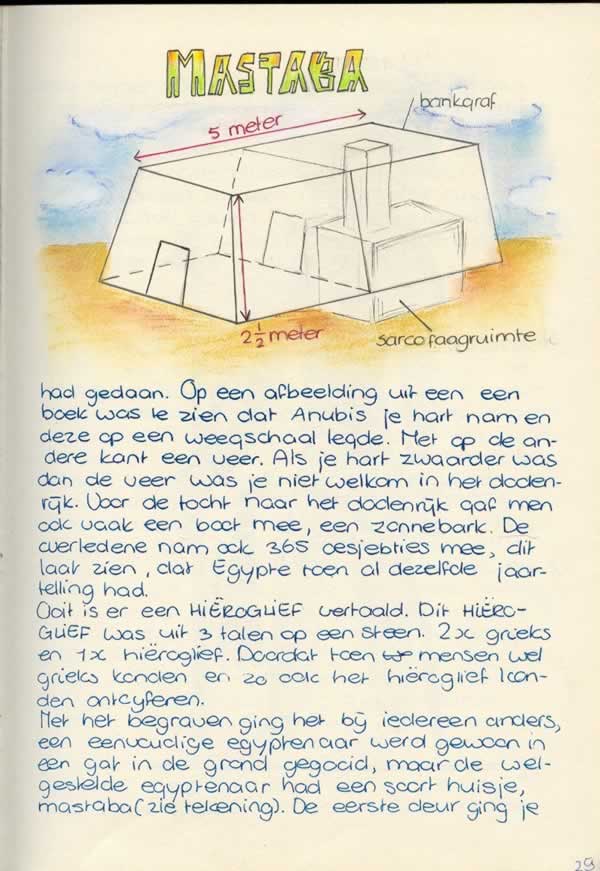 MASTABA
bankgraf
5 meter
2 1/2 meter
sarcofaagruimte
had gedaan. Op een afbeelding uit een een
boek was te zien dat Anubis je hart nam en
deze op een weegschaal legde. Met op de an-
dere kant een veer. Als je hart zwaarder was
dan de veer was je niet welkom in het doden-
rijk. Voor de tocht naar het dodenrijk gaf men
ook vaak een boot mee, een zonnebark. De
overledene nam ook 365 oesjebties mee, dit
laat zien, dat Egypte toen al dezelfde jaar-
telling had.
Ooit is er een HIËROGLIEF vertaald. Dit HIËRO-
GLIEF was uit 3 talen op een steen. 2x grieks
en 1x hiëroglief. Doordat toen mensen wel
grieks konden en zo ook het hiëroglief kon-
den ontcyferen.
Met het begraven ging het bij iedereen anders,
een eenvoudige egyptenaar werd gewoon in
een gat in de grond gegooid, maar de wel-
gestelde egyptenaar had een soort huisje,
mastaba (zie tekening). De eerste deur ging je
29